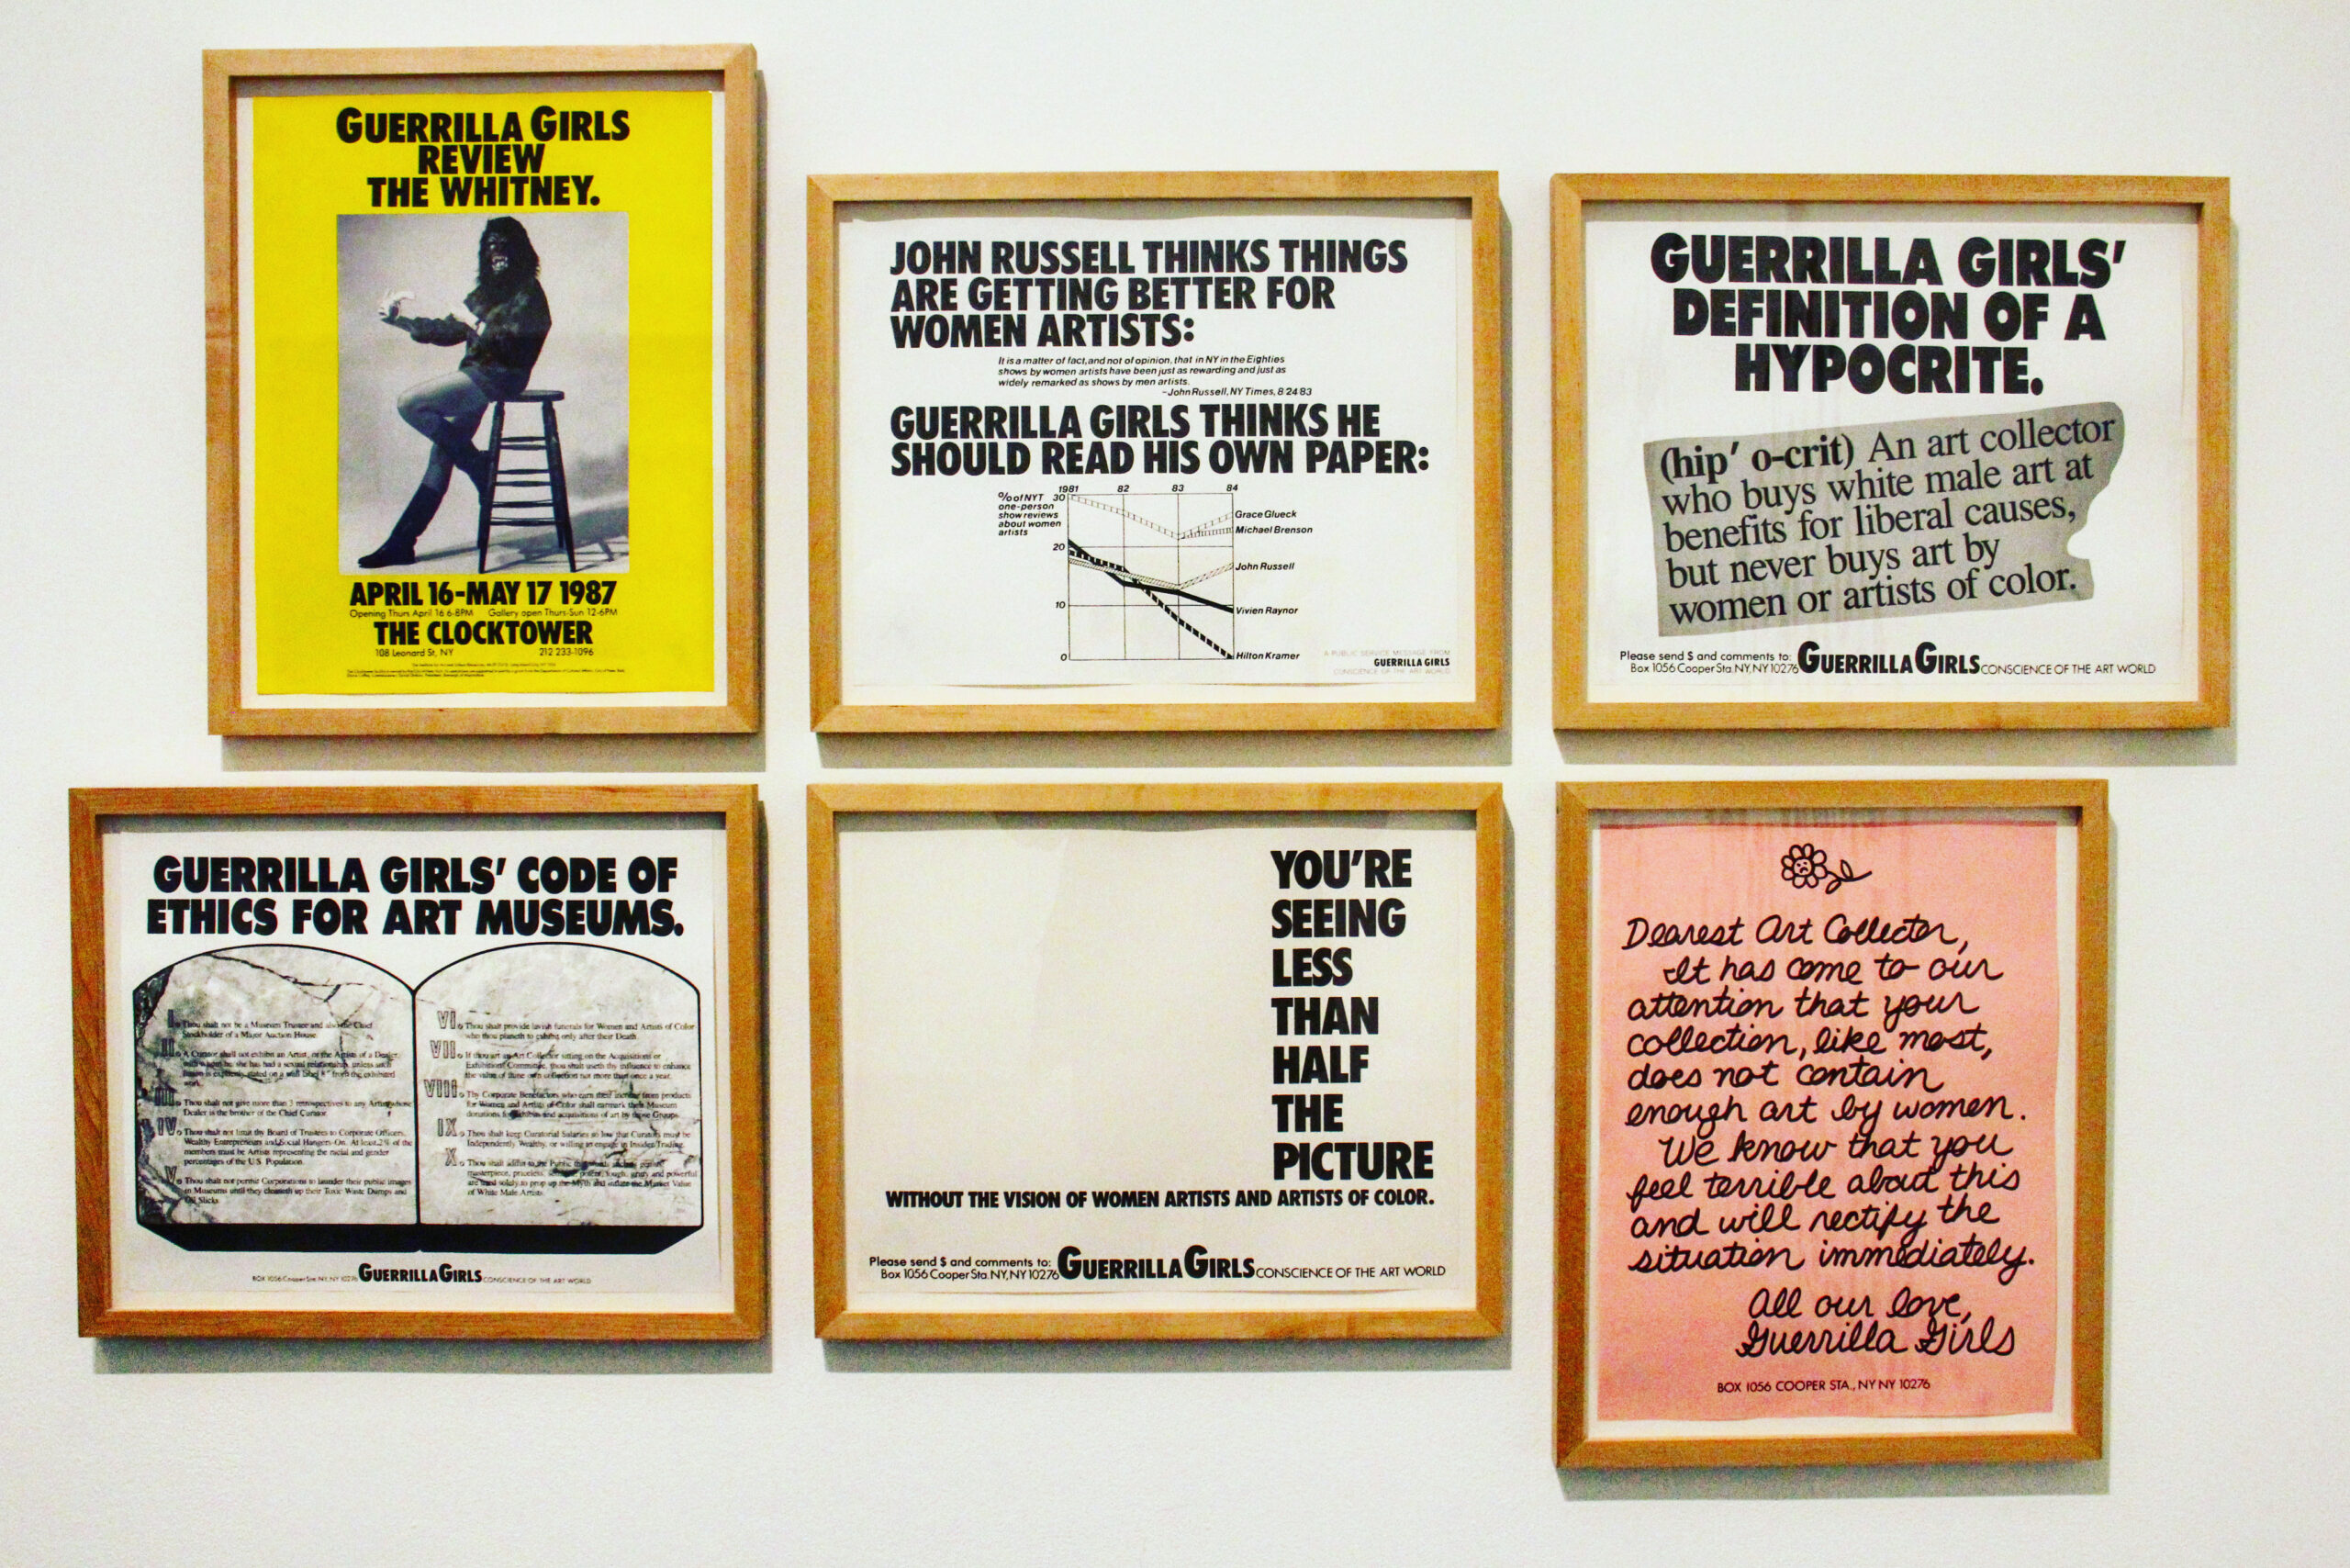 GUERRILLA GIRLS
REVIEW
THE WHITNEY.
APRIL 16-MAY 17 1987
Opening Thurs April 16 6-8PM Gallery open Thurs-Sun 12-6PM
THE CLOCKTOWER
108 Leonard St, NY 212 233-1096
JOHN RUSSELL THINKS THINGS
ARE GETTING BETTER FOR
WOMEN ARTISTS:
It is a matter of fact, and not of opinion, that in NY in the Eighties
shows by women artists have been just as rewarding and just as
widely remarked as shows by men artists.
-John Russell, NY Times, 8·24·83
GUERRILLA GIRLS THINKS HE
SHOULD READ HIS OWN PAPER:
1981 82 83 84
% of NYT 30
one-person
show reviews
about women
artists
Grace Glueck
Michael Brenson
20
John Russell
10
Vivien Raynor
0
Hilton Kramer
A PUBLIC SERVICE MESSAGE FROM
GUERRILLA GIRLS
CONSCIENCE OF THE ART WORLD
GUERRILLA GIRLS'
DEFINITION OF A
HYPOCRITE.
(hip' o-crit) An art collector
who buys white male art at
benefits for liberal causes,
but never buys art by
women or artists of color.
Please send $ and comments to:
Box 1056 Cooper Sta. NY, NY 10276 GUERRILLA GIRLS CONSCIENCE OF THE ART WORLD
GUERRILLA GIRLS' CODE OF
ETHICS FOR ART MUSEUMS.
I. Thou shalt not be a Museum Trustee and also the Chief
Stockholder of a Major Auction House.
II. A Curator shall not exhibit an Artist, or the Artists of a Dealer,
with whom he/she has had a sexual relationship, unless such
liaison is explicitly stated on a wall label 8" from the exhibited
work.
III. Thou shalt not give more than 3 retrospectives to any Artist whose
Dealer is the brother of the Chief Curator.
IV. Thou shalt not limit thy Board of Trustees to Corporate Officers,
Wealthy Entrepreneurs and Social Hangers-On. At least .2% of the
members must be Artists representing the racial and gender
percentages of the U.S. Population.
V. Thou shalt not permit Corporations to launder their public images
in Museums until they cleaneth up their Toxic Waste Dumps and
Oil Slicks.
VI. Thou shalt provide lavish funerals for Women and Artists of Color
who thou planeth to exhibit only after their Death.
VII. If thou art an Art Collector sitting on the Acquisitions or
Exhibitions Committee, thou shalt useth thy influence to enhance
the value of thine own collection not more than once a year.
VIII. Thy Corporate Benefactors who earn their income from products
for Women and Artists of Color shall earmark their Museum
donations for exhibits and acquisitions of art by those Groups.
IX. Thou shalt keep Curatorial Salaries so low that Curators must be
Independently Wealthy, or willing to engage in Insider Trading.
X. Thou shalt admit to the Public that words such as genius,
masterpiece, priceless, seminal, potent, tough, gritty and powerful
are used solely to prop up the Myth and inflate the Market Value
of White Male Artists.
BOX 1056 Cooper Sta. NY, NY 10276 GUERRILLA GIRLS CONSCIENCE OF THE ART WORLD
YOU'RE
SEEING
LESS
THAN
HALF
THE
PICTURE
WITHOUT THE VISION OF WOMEN ARTISTS AND ARTISTS OF COLOR.
Please send $ and comments to:
Box 1056 Cooper Sta. NY, NY 10276 GUERRILLA GIRLS CONSCIENCE OF THE ART WORLD
Dearest Art Collector,
It has come to our
attention that your
collection, like most,
does not contain
enough art by women.
We know that you
feel terrible about this
and will rectify the
situation immediately.
All our love,
Guerrilla Girls
BOX 1056 COOPER STA., NY NY 10276